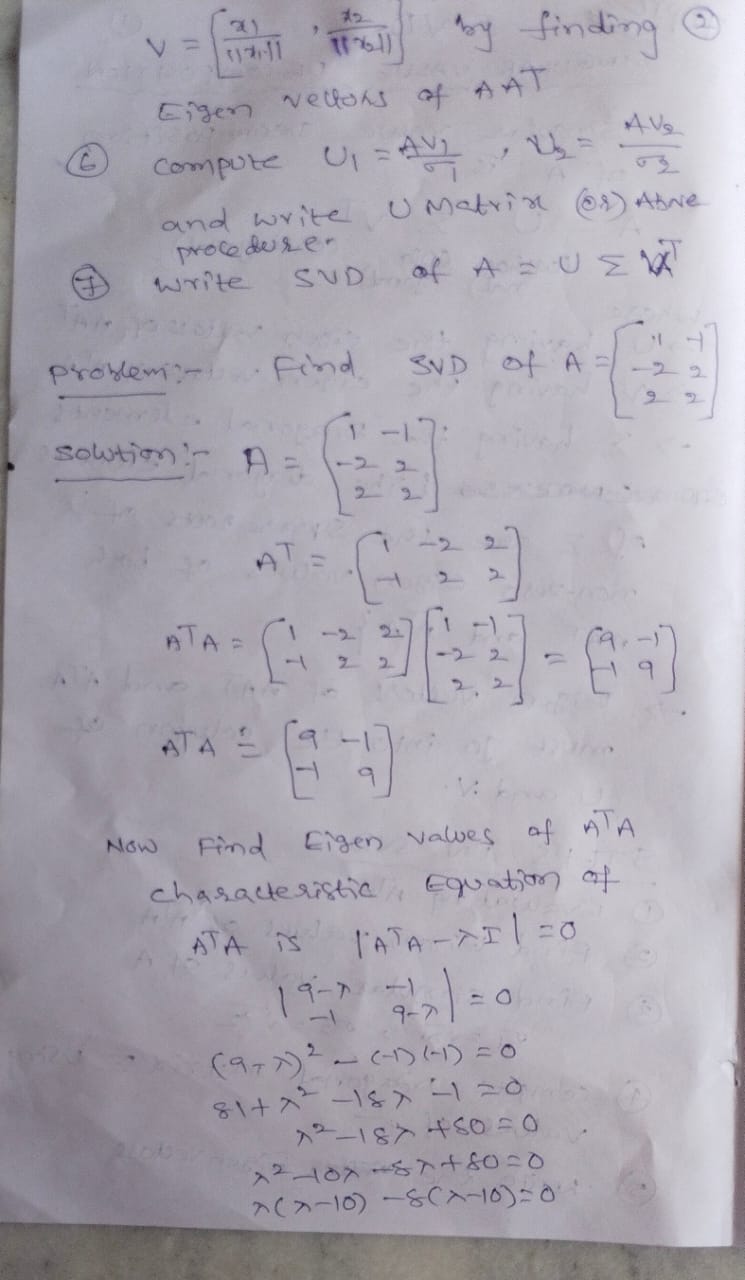 ②
V = [x1/||x1||, x2/||x2||] by finding
Eigen vectors of AAT
⑥ compute U1 = AV1/σ1, U2 = AV2/σ2
and write U Matrix (or) Above
procedure.
⑦ write SVD of A = U Σ VT
problem:- Find SVD of A = [1 -1; -2 2; 2 2]
solution:- A = [1 -1; -2 2; 2 2]
AT = [1 -2 2; -1 2 2]
ATA = [1 -2 2; -1 2 2] [1 -1; -2 2; 2 2] = [9 -1; -1 9]
ATA = [9 -1; -1 9]
Now Find Eigen values of ATA
characteristic Equation of
ATA is |ATA - λI| = 0
|9-λ -1; -1 9-λ| = 0
(9-λ)² - (-1)(-1) = 0
81+λ² -18λ -1 = 0
λ² -18λ +80 = 0
λ² -10λ -8λ +80 = 0
λ(λ-10) -8(λ-10) = 0